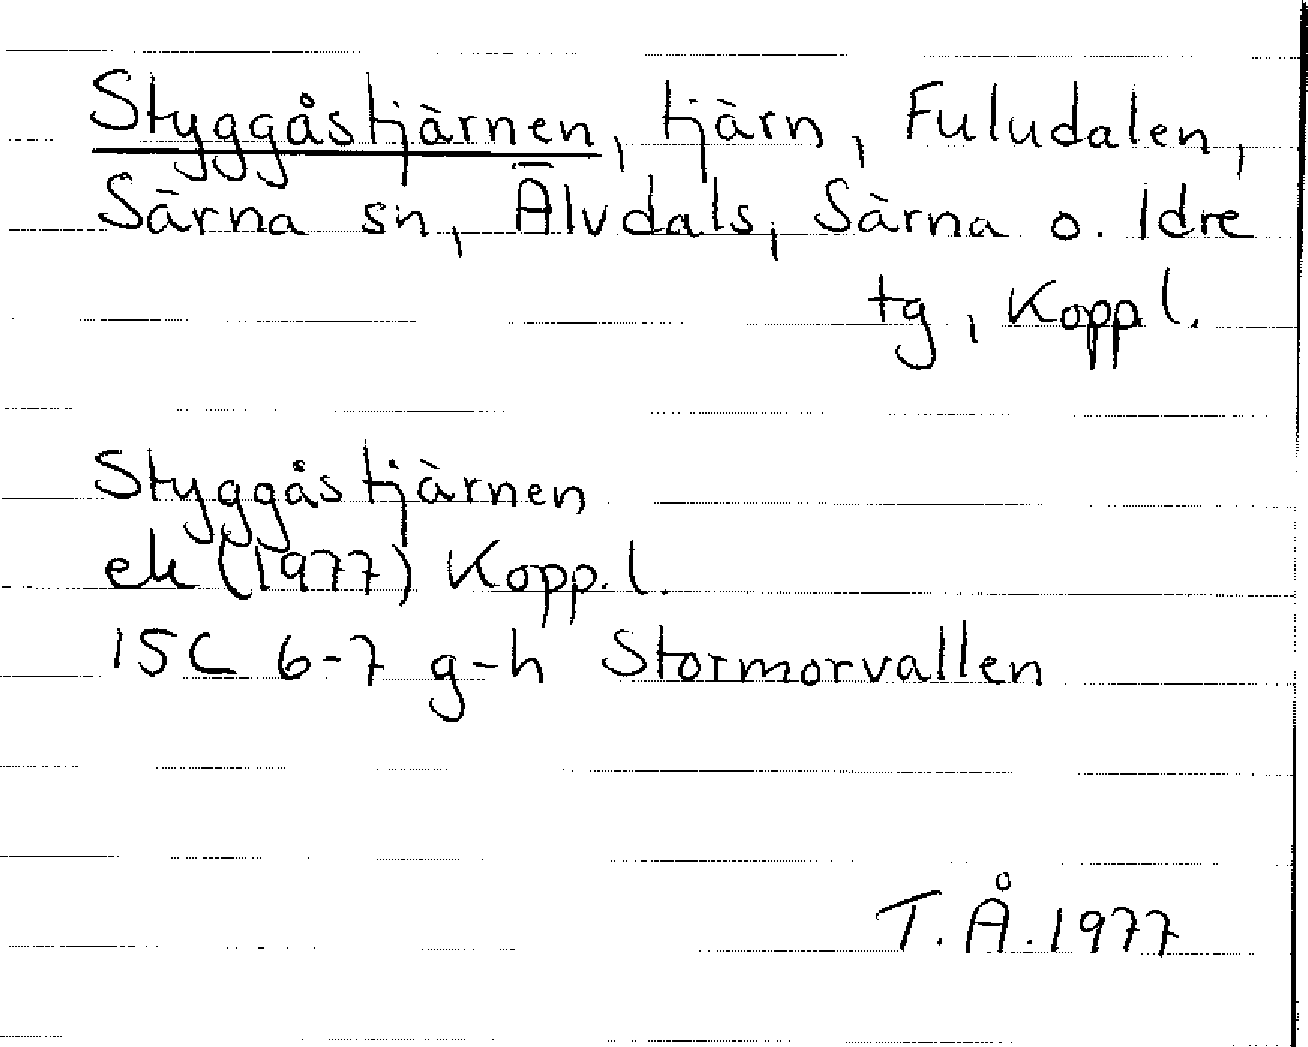 Styggåstjärnen, tjärn, Fuludalen,
Särna sn, Älvdals, Särna o. Idre
tg, Koppl.
Styggåstjärnen
ek (1977) Kopp.l.
15C 6-7 g-h Stormorvallen
T.Å.1977